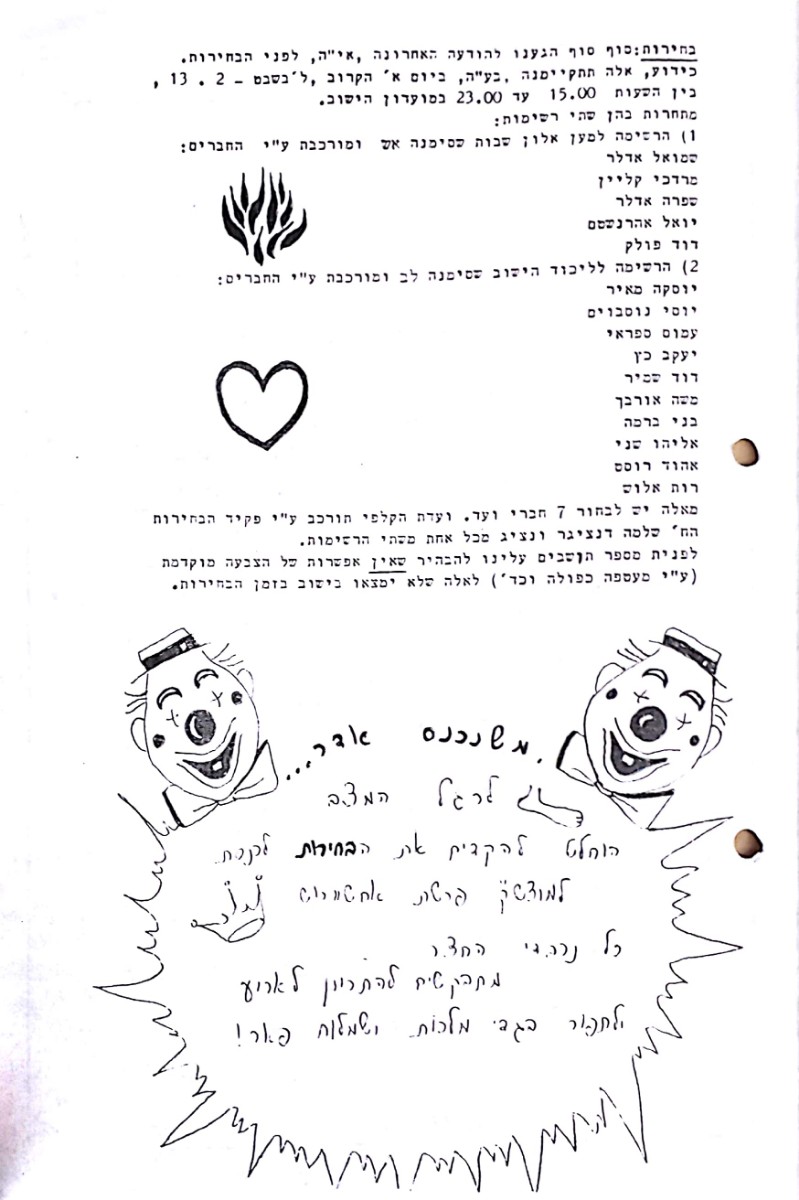 בחירות:סוף סוף הגענו להודעה האחרונה ,אי"ה, לפני הבחירות.
כידוע, אלה תתקיימנה ,בע"ה, ביום א' הקרוב ,ל'בשבט - 13 . 2 ,
בין השעות 15.00 עד 23.00 במועדון הישוב.
מתחרות בהן שתי רשימות:
1) הרשימה למען אלון שבות שסימנה אש ומורכבת ע"י החברים:
שמואל אדלר
מרדכי קליין
שפרה אדלר
יואל אהרנשטם
דוד פולק
2) הרשימה לליכוד הישוב שסימנה לב ומורכבת ע"י החברים:
יוסקה מאיר
יוסי נוסבוים
עמוס ספראי
יעקב כץ
דוד שמיר
משה אורבך
בני ברמה
אליהו שני
אהוד רוסס
רות אלוש
מאלה יש לבחור 7 חברי ועד. ועדת הקלפי תורכב ע"י פקיד הבחירות
הח' שלמה דנציגר ונציג מכל אחת משתי הרשימות.
לפנית מספר תושבים עלינו להבהיר שאין אפשרות של הצבעה מוקדמת
(ע"י מעטפה כפולה וכד') לאלה שלא ימצאו בישוב בזמן הבחירות.
משנכנס אדר...
לרגל המצב
הוחלט להקדים את הבחירות לקרת
למוצש"ק פרשת אחשורוש
כל נרהדי החצר
מתבקשים להתכונן לארוע
ולתפור בגדי מלכות ושמלות פאר!